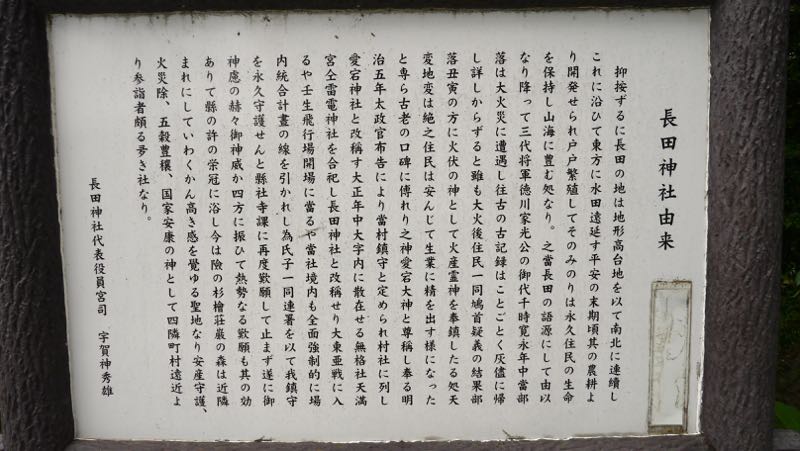 長田神社由来
抑按ずるに長田の地は地形高台地を以て南北に連續し
これに沿ひて東方に水田遠延す平安の末期頃其の農耕よ
り開発せられ戸戸繁殖してそのみのりは永久住民の生命
を保持し山海に豊む処なり。之當長田の語源にして由以
なり降って三代将軍徳川家光公の御代千時寛永年中當部
落は大火災に遭遇し往古の古記録はことごとく灰儘に帰
し詳しからずると雖も大火後住民一同鳩首疑義の結果部
落丑寅の方に火伏の神として火産霊神を奉鎮したる処天
変地変は絶之住民は安んじて生業に精を出す様になった
と専ら古老の口碑に傳れり之神愛宕大神と尊稱し奉る明
治五年太政官布告により當村鎮守と定められ村社に列し
愛宕神社と改稱す大正年中大字内に散在せる無格社天満
宮仝雷電神社を合祀し長田神社と改稱せり大東亜戦に入
るや壬生飛行場開場に當るや當社境内も全面強制的に場
内統合計畫の線を引かれし為氏子一同連署を以て我鎮守
を永久守護せんと縣社寺課に再度歎願して止まず遂に御
神慮の赫々御神威か四方に振ひて熱勢なる歎願も其の効
ありて縣の許の栄冠に浴し今は險の杉檜荘巌の森は近隣
まれにしていわくかん高き感を覚ゆる聖地なり安産守護、
火災除、五穀豊穰、国家安康の神として四隣町村遠近よ
り参詣者頗る多き社なり。
長田神社代表役員宮司 宇賀神秀雄